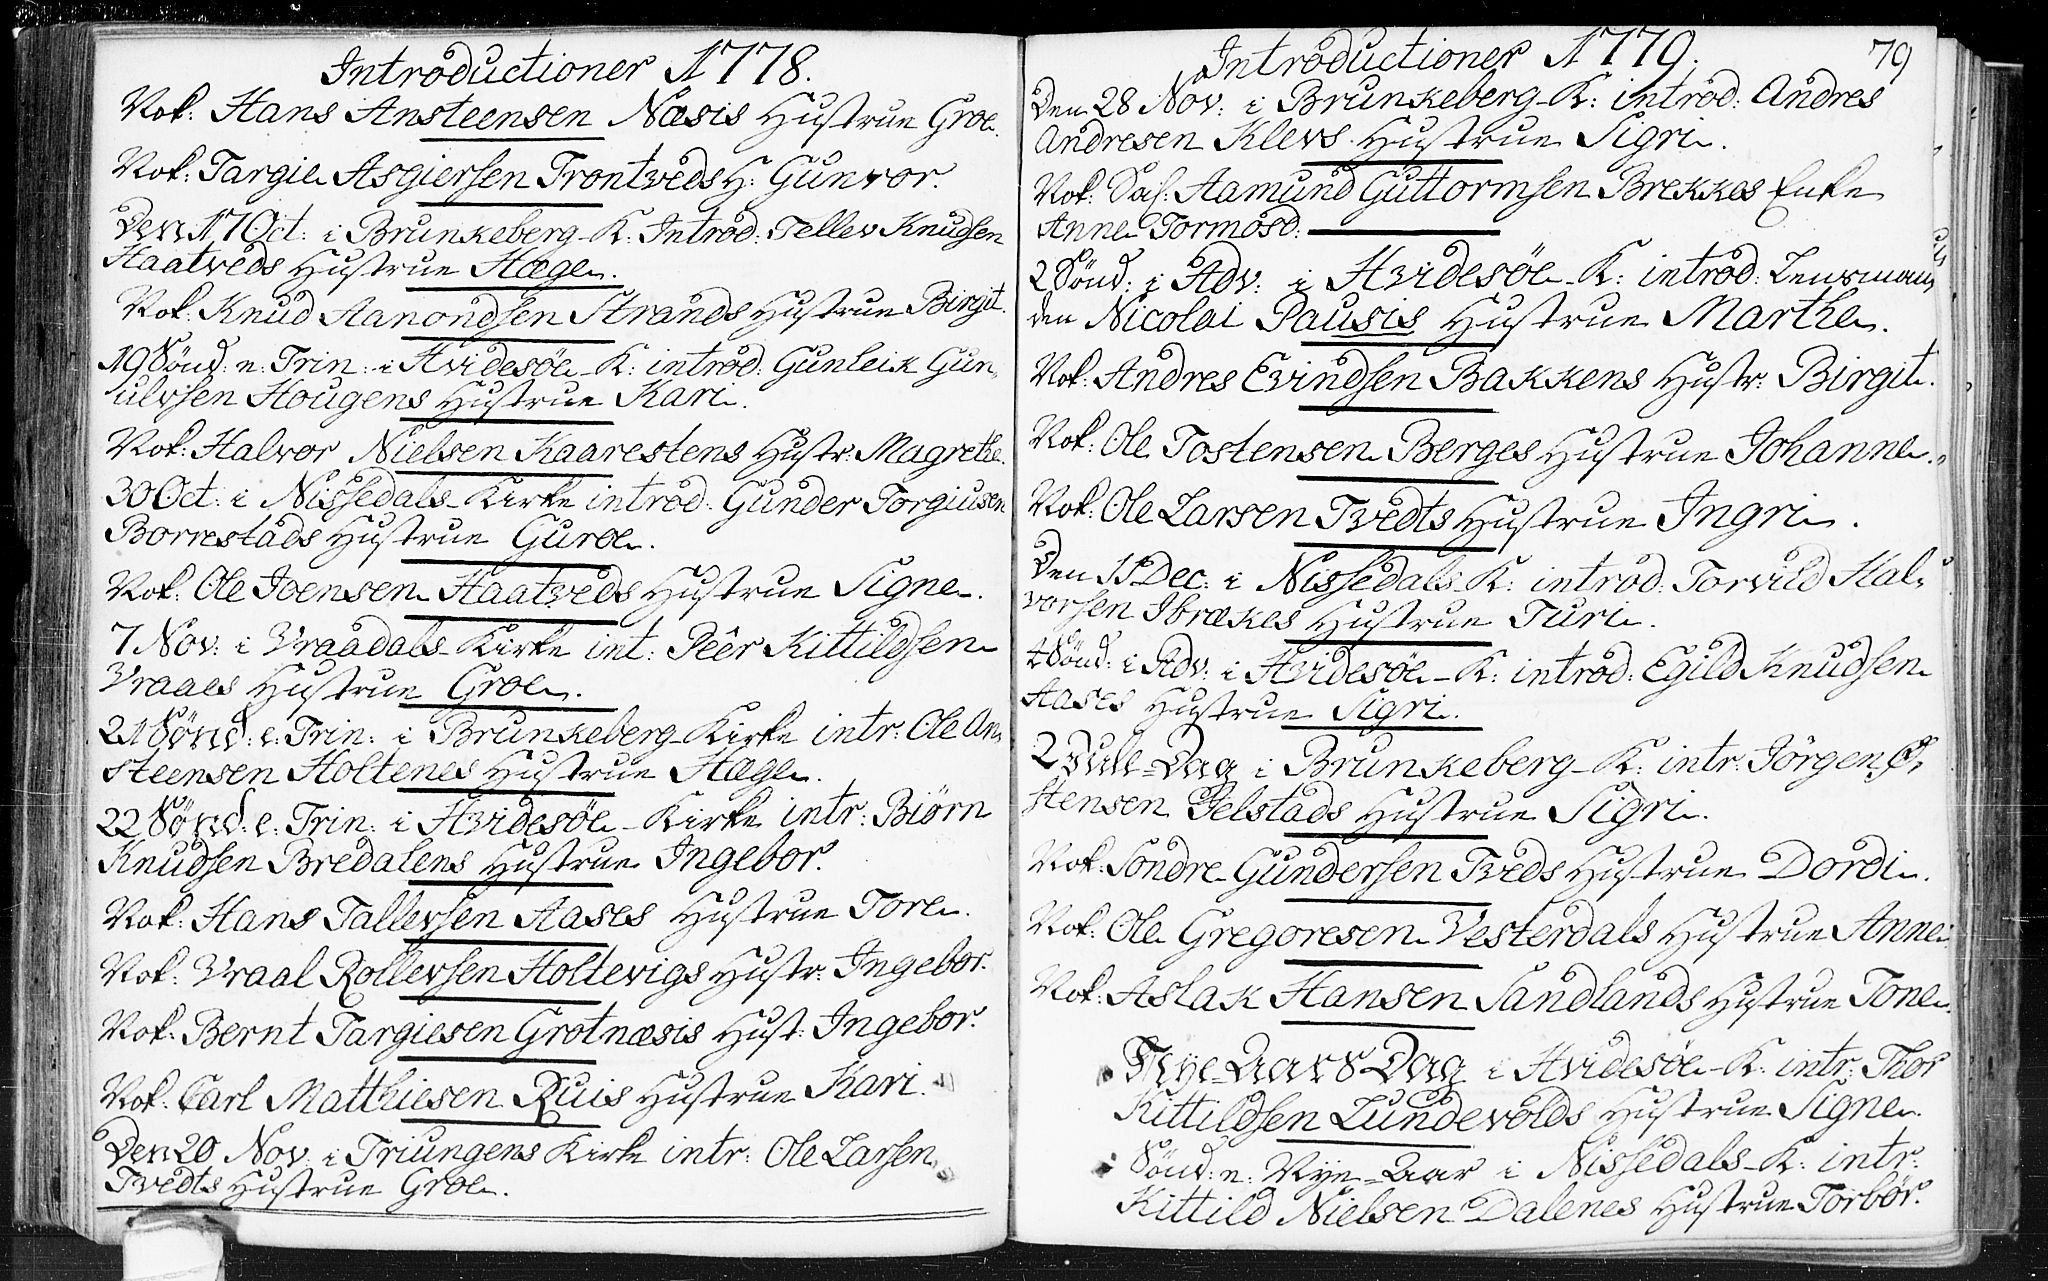 Introductioner 1778.
Nok: Hans Ansteensen Næsis Hustrue Groe.
Nok: Targie Asgiersen Trontveds H: Gunvor.
Den 17 Oct: i Brunkeberg-K: Introd: Tellev Knudsen
Haatveds Hustrue Hæge.
Nok: Knud Aanondsen Strands Hustrue Birgit.
19 Sönd: e: Trin: i Hvidesöe-K: introd: Gunleik Gun-
ulvsen Hougens Hustrue Kari.
Nok: Halvor Nielsen Kaarestens Hustr: Magrethe.
30 Oct: i Nissedals-Kirke introd: Gunder Torgiusen
Borrestads Hustrue Guroe.
Nok: Ole Joensen Haatveds Hustrue Signe.
7 Nov: i Vraadals-Kirke int: Peer Kittildsen
Vraaes Hustrue Groe.
21 Sönd: e: Trin: i Brunkeberg-Kirke intr: Ole An-
steensen Holtenes Hustrue Hæge.
22 Sönd: e: Trin: i Hvidesöe-Kirke intr: Biörn
Knudsen Bredalens Hustrue Ingebor.
Nok: Hans Tallevsen Aases Hustrue Tore.
Nok: Vraal Rollevsen Holtevigs Hustr: Ingebor.
Nok: Bernt Targiesen Grotnæsis Hust: Ingebor.
Nok: Carl Matthiesen Ruis Hustrue Kari.
Den 20 Nov: i Triungens Kirke intr: Ole Larsen
Tvedts Hustrue Groe.
Introductioner 1779.
79
Den 28 Nov: i Brunkeberg-K: introd: Andres
Andresen Klevs Hustrue Sigri.
Nok: Sal: Aamund Guttormsen Brekkes Enke
Anne Tormosd:
2 Sönd: i Adv: i Hvidesöe-K: introd: Lensman-
den Nicolai Pausis Hustrue Marthe.
Nok: Andres Evindsen Bakkens Hustr: Birgit.
Nok: Ole Tostensen Berges Hustrue Johanne.
Nok: Ole Larsen Tvedts Hustrue Ingri.
Den 11 Dec: i Nissedals K: introd: Torvild Hal-
vorsen Ibrækes Hustrue Turi.
4 Sönd: i Adv: i Hvidesöe-K: introd: Egild Knudsen
Aases Hustrue Sigri.
2 Jule-Dag i Brunkeberg-K: intr: Jörgen Ø-
stensen Jelstads Hustrue Sigri.
Nok: Söndre Gundersen Tveds Hustrue Dordi.
Nok: Ole Gregoresen Vesterdals Hustrue Anne.
Nok: Aslak Hansen Sandlands Hustrue Tone.
Nye-Aars Dag i Hvidesöe-K: intr: Thor
Kittildsen Lundevolds Hustrue Signe.
Sönd: e: Nye-Aar i Nissedals-K: intr:
Kittild Nielsen Dalenes Hustrue Torbör.